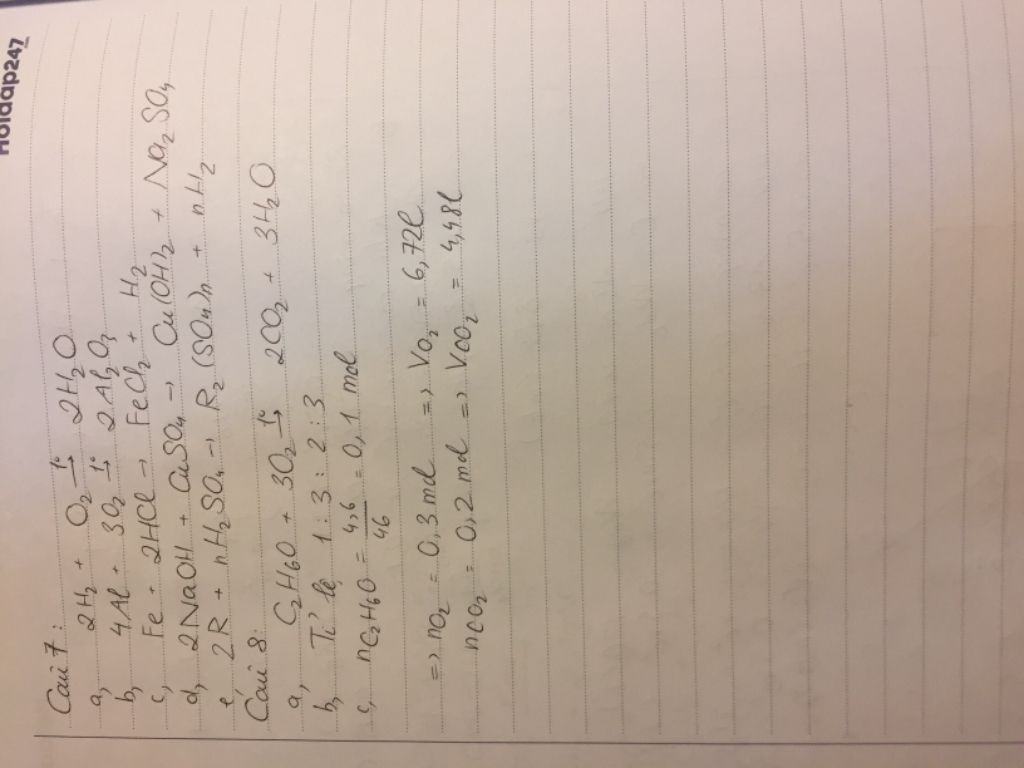 Hoidap247
Câu 7:
a, 2H₂ + O₂ →t° 2H₂O
b, 4Al + 3O₂ →t° 2Al₂O₃
c, Fe + 2HCl → FeCl₂ + H₂
d, 2NaOH + CuSO₄ → Cu(OH)₂ + Na₂SO₄
e, 2R + nH₂SO₄ → R₂(SO₄)n + nH₂
Câu 8:
a, C₂H₆O + 3O₂ →t° 2CO₂ + 3H₂O
b, Tỉ lệ 1 : 3 : 2 : 3
c, nC₂H₆O = 4,6/46 = 0,1 mol
=> nO₂ = 0,3 mol => VO₂ = 6,72l
nCO₂ = 0,2 mol => VCO₂ = 4,48l